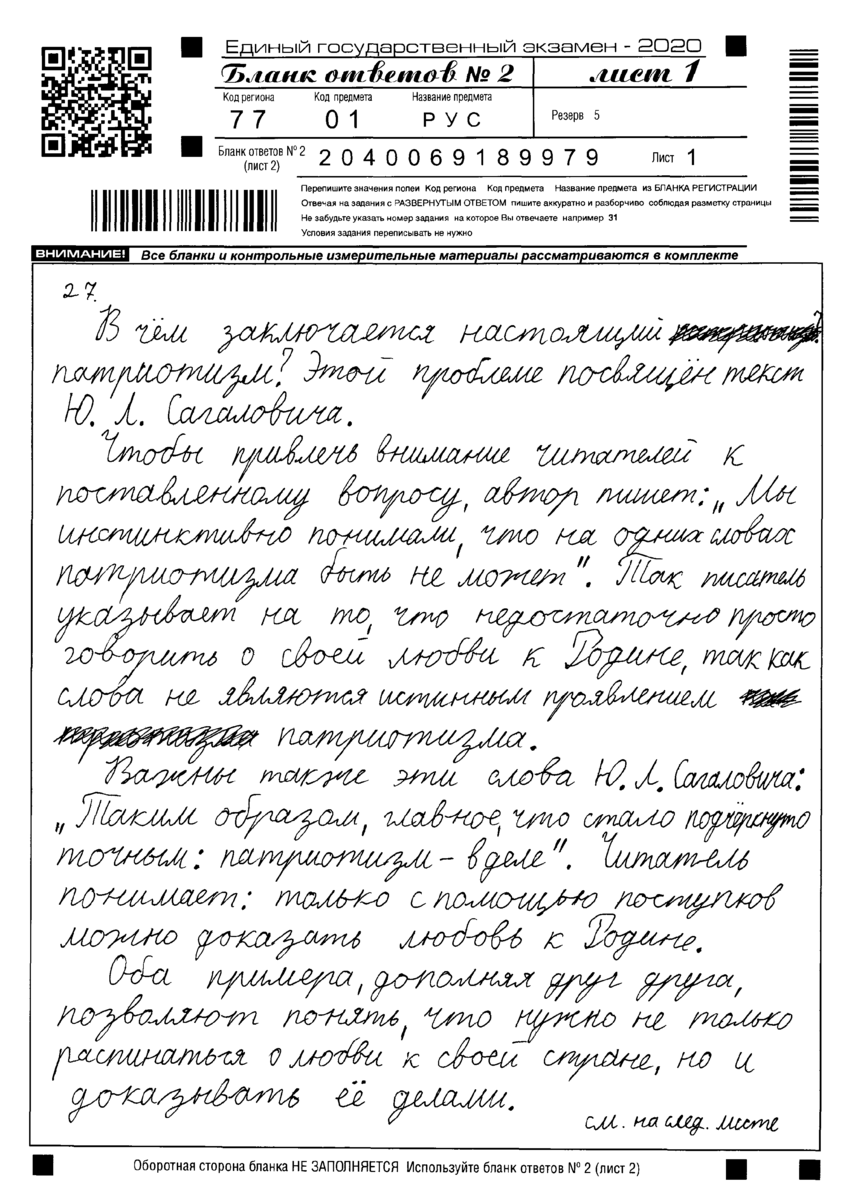 Единый государственный экзамен - 2020
Бланк ответов № 2 лист 1
Код региона Код предмета Название предмета
77 01 РУС Резерв 5
Бланк ответов № 2
(лист 2) 2040069189979 Лист 1
Перепишите значения полеи Код региона Код предмета Название предмета из БЛАНКА РЕГИСТРАЦИИ
Отвечая на задания с РАЗВЕРНУТЫМ ОТВЕТОМ пишите аккуратно и разборчиво соблюдая разметку страницы
Не забудьте указать номер задания на которое Вы отвечаете например 31
Условия задания переписывать не нужно
ВНИМАНИЕ! Все бланки и контрольные измерительные материалы рассматриваются в комплекте
27.
В чём заключается настоящий
патриотизм? Этой проблеме посвящён текст
Ю. Л. Сагаловича.
Чтобы привлечь внимание читателей к
поставленному вопросу, автор пишет: „Мы
инстинктивно понимали, что на одних словах
патриотизма быть не может". Так писатель
указывает на то, что недостаточно просто
говорить о своей любви к Родине, так как
слова не являются истинным проявлением
патриотизма.
Важны также эти слова Ю. Л. Сагаловича:
„Таким образом, главное, что стало подчёркнуто
точным: патриотизм – в деле". Читатель
понимает: только с помощью поступков
можно доказать любовь к Родине.
Оба примера, дополняя друг друга,
позволяют понять, что нужно не только
распинаться о любви к своей стране, но и
доказывать её делами.
см. на след. листе
Оборотная сторона бланка НЕ ЗАПОЛНЯЕТСЯ Используйте бланк ответов № 2 (лист 2)